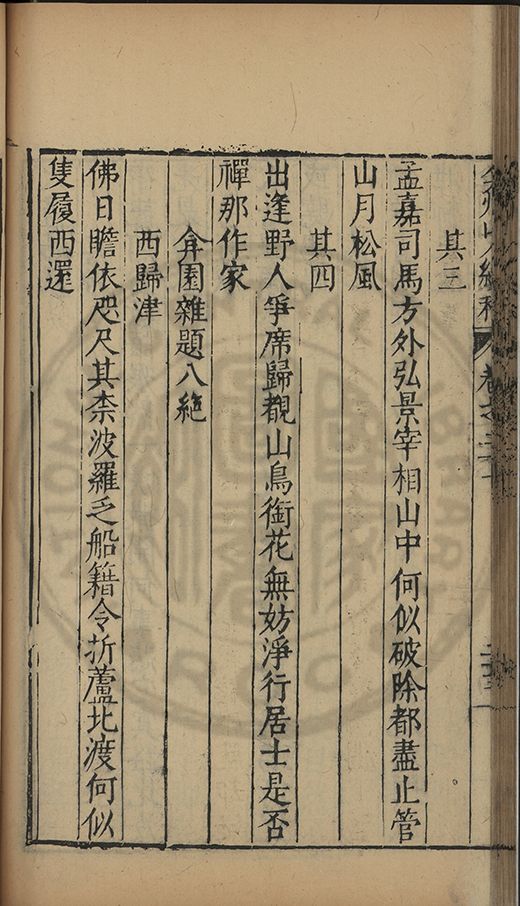 其三
孟嘉司馬方外弘景宰相山中何似破除都盡止管
山月松風
其四
出逢野人爭席歸覩山鳥銜花無妨淨行居士是否
禪那作家
弇園雜題八絶
西歸津
佛日瞻依咫尺其柰波羅乏船籍令折蘆北渡何似
隻履西還